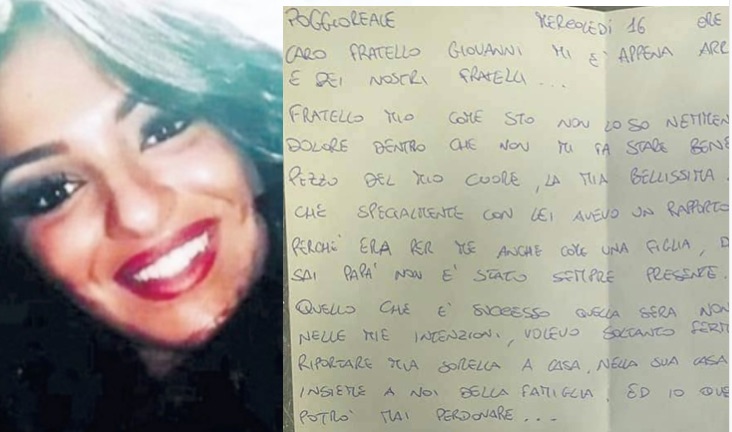 POGGIOREALE MERCOLEDÌ 16 ORE
CARO FRATELLO GIOVANNI MI È APPENA ARR
E DEI NOSTRI FRATELLI ...
FRATELLO MIO COME STO NON LO SO NEMMEN
DOLORE DENTRO CHE NON MI FA STARE BENE
PEZZO DEL MIO CUORE, LA MIA BELLISSIMA
CHE SPECIALMENTE CON LEI AVEVO UN RAPPORTO
PERCHÈ ERA PER ME ANCHE COME UNA FIGLIA, D
SAI PAPÀ NON È STATO SEMPRE PRESENTE.
QUELLO CHE È SUCCESSO QUELLA SERA NON
NELLE MIE INTENZIONI, VOLEVO SOLTANTO FERM
RIPORTARE MIA SORELLA A CASA, NELLA SUA CASA
INSIEME A NOI DELLA FAMIGLIA. ED IO QUE
POTRÒ MAI PERDONARE...